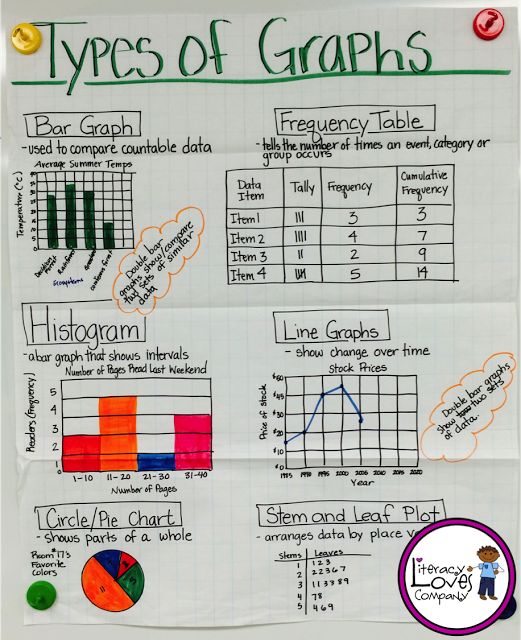 Types of Graphs
Bar Graph
-used to compare countable data
Average Summer Temps
Temperature (°C)
40
35
30
25
20
15
10
5
0
Deciduous forest
Rainforest
coniferous forest
Ecosystems
Double bar
graphs show/compare
two sets of similar
data
Frequency Table
-tells the number of times an event, category or
group occurs
Data Item Tally Frequency Cumulative Frequency
Item 1 III 3 3
Item 2 IIII 4 7
Item 3 II 2 9
Item 4 5 14
Histogram
-a bar graph that shows intervals
Number of Pages Read Last Weekend
Readers (Frequency)
5
4
3
2
1
0
1-10 11-20 21-30 31-40
Number of Pages
Line Graphs
- show change over time
Stock Prices
Price of Stock
$50
$40
$30
$20
$10
$0
1985 1990 1995 2000 2005 2010 2015 2020
Year
Double bar graphs
show two sets
of data.
Circle/Pie Chart
- shows parts of a whole
Room #17's
Favorite
Colors
11
Stem and Leaf Plot
- arranges data by place
Stems Leaves
1 1 2 3
2 2 2 3 6 7
3 1 1 3 3 8 9
4 7 8
5 4 6 9
Literacy
Loves
Company